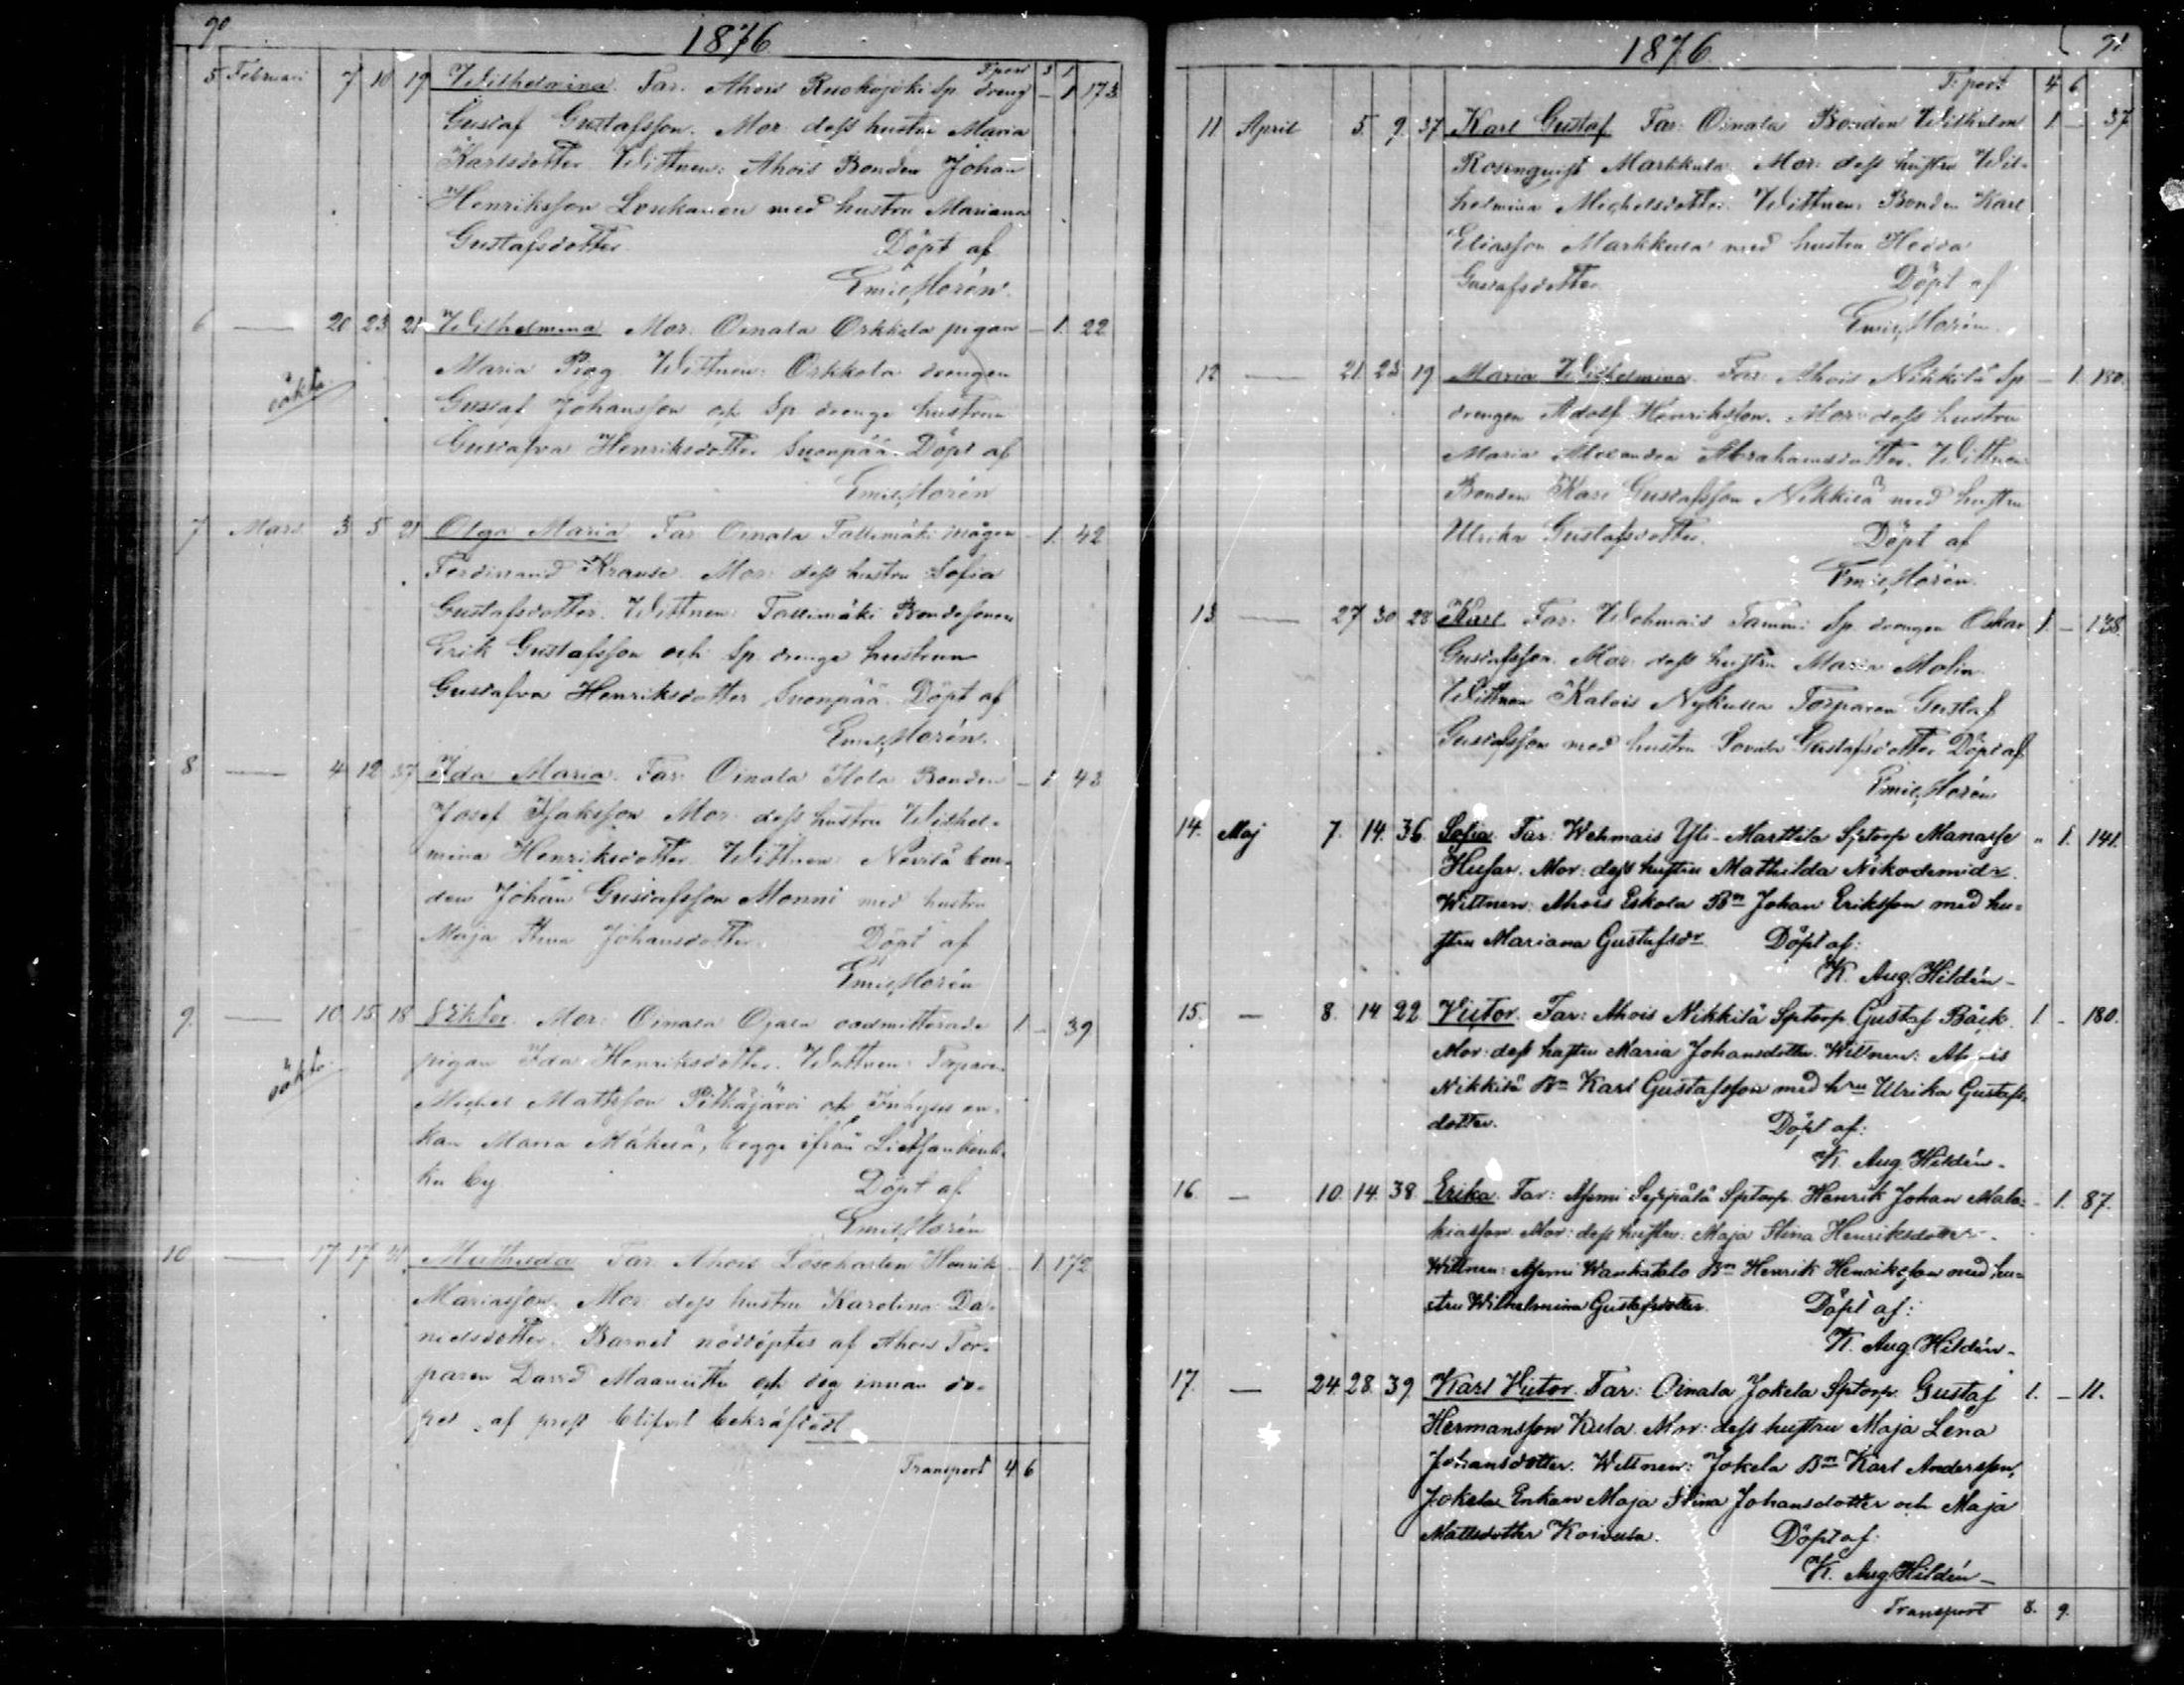 90
1876
Tport 3 1
5 Februari 7 10 19 Wilhelmina. Far: Ahois Ruokojoki Sp. dreng – 1 173
Gustaf Gustafsson. Mor: dess hustru Maria
Karlsdotter. Wittnen: Ahois Bonden Johan
Henriksson Loukanen med hustru Mariana
Gustafsdotter. Döpt af
Emil Horén.
6 — 20 23 21 Wilhelmina. Mor: Oinala Orkkola pigan – 1. 22
Maria Pigg. Wittnen: Orkkola drengen
oäkta
Gustaf Johansson och Sp. drengs hustrun
Gustafva Henriksdotter Suonpää. Döpt af
Emil Horén
7 Mars 3 5 21 Olga Maria. Far: Oinala Tallimäki mågen – 1. 42
Ferdinand Krause. Mor: dess hustru Sofia
Gustafsdotter. Wittnen: Tallimäki Bondesonen
Erik Gustafsson och Sp. drengs hustrun
Gustafva Henriksdotter Suonpää. Döpt af
Emil Horén.
8 — 4 12 37 Ida Maria. Far: Oinala Ilola Bonden – 1 43
Josef Isaksson. Mor: dess hustru Wilhel-
mina Henriksdotter. Wittnen: bon-
den Johan Gustafsson Monni med hustru
Maja Stina Johansdotter. Döpt af
Emil Horén
9. — 10 15 18 Viktor. Mor: Oinala Ojala oadmitterade 1 – 39
pigan Ida Henriksdotter. Wittnen: Torparen
oäkta
Michel Mattsson Pitkäjärvi och Inhyses en-
kan Maria Mäkelä, begge ifrån
ku by Döpt af
Emil Horén
10 — 17 17 41 Mathilda. Far: Ahois Löskarlen Henrik – 1 172
Mariasson. Mor: dess hustru Karolina Da-
nielsdotter. Barnet nöddöptes af Ahois Tor-
paren David Maaniittu och dog innan do-
pet af prest blifvit bekräftadt
Transport 4 6
91
1876
T:port 4 6
11 April 5. 9. 37 Karl Gustaf. Far: Oinala Bonden Wilhelm 1. – 37
Rosenqvist Markkula. Mor: dess hustru Wil-
helmina Michelsdotter. Wittnen: Bonden Karl
Eliasson Markkula med hustru Hedda
Gustafsdotter. Döpt af
Emil Horén.
12 — 21 23 19 Maria Wilhelmina. Far: Ahois Nikkilä Sp – 1. 180.
drengen Adolf Henriksson. Mor: dess hustru
Maria Alexandra Abrahamsdotter. Wittnen:
Bonden Karl Gustafsson Nikkilä med hustru
Ulrika Gustafsdotter. Döpt af
Emil Horén.
13 — 27 30 28 Karl. Far: Wehmais Tammi Sp. drengen Oskar 1. – 138.
Gustafsson. Mor: dess hustru Maria Molin.
Wittnen Kalois Nykulla Torparen Gustaf
Gustafsson med hustru Lovisa Gustafsdotter Döpt af
Emil Horén
14. Maj 7. 14. 36. Sofia. Far: Wehmais Yli-Marttila Sptorp. Manasse " 1. 141.
Husar. Mor: dess hustru Mathilda Nikodemidr.
Wittnen: Ahois Eskola Bn Johan Eriksson med hu-
stru Mariana Gustafsdr. Döpt af:
K. Aug. Hildén –
15. — 8. 14 22 Victor. Far: Ahois Nikkilä Sptorp. Gustaf Bäck. 1. – 180.
Mor: dess hustru Maria Johansdotter. Wittnen: Ahois
Nikkilä Bn Karl Gustafsson med hru Ulrika Gustafs-
dotter. Döpt af:
K. Aug. Hildén –
16. — 10. 14. 38. Erika. Far: Seppälä Sptorp. Henrik Johan Mala- – 1. 87.
kiasson. Mor: dess hustru: Maja Stina Henriksdotter.
Wittnen: Wanhatalo Bn Henrik Henriksson med hu-
stru Wilhelmina Gustafsdotter. Döpt af:
K. Aug. Hildén –
17. — 24. 28. 39. Karl Victor. Far: Oinala Jokela Sptorp. Gustaf 1. – 11.
Hermansson Kula. Mor: dess hustru Maja Lena
Johansdotter. Wittnen: Jokela Bn Karl Andersson,
Jokela Enkan Maja Stina Johansdotter och Maja
Mattsdotter Koivula. Döpt af:
K. Aug. Hildén –
Transport 8. 9.